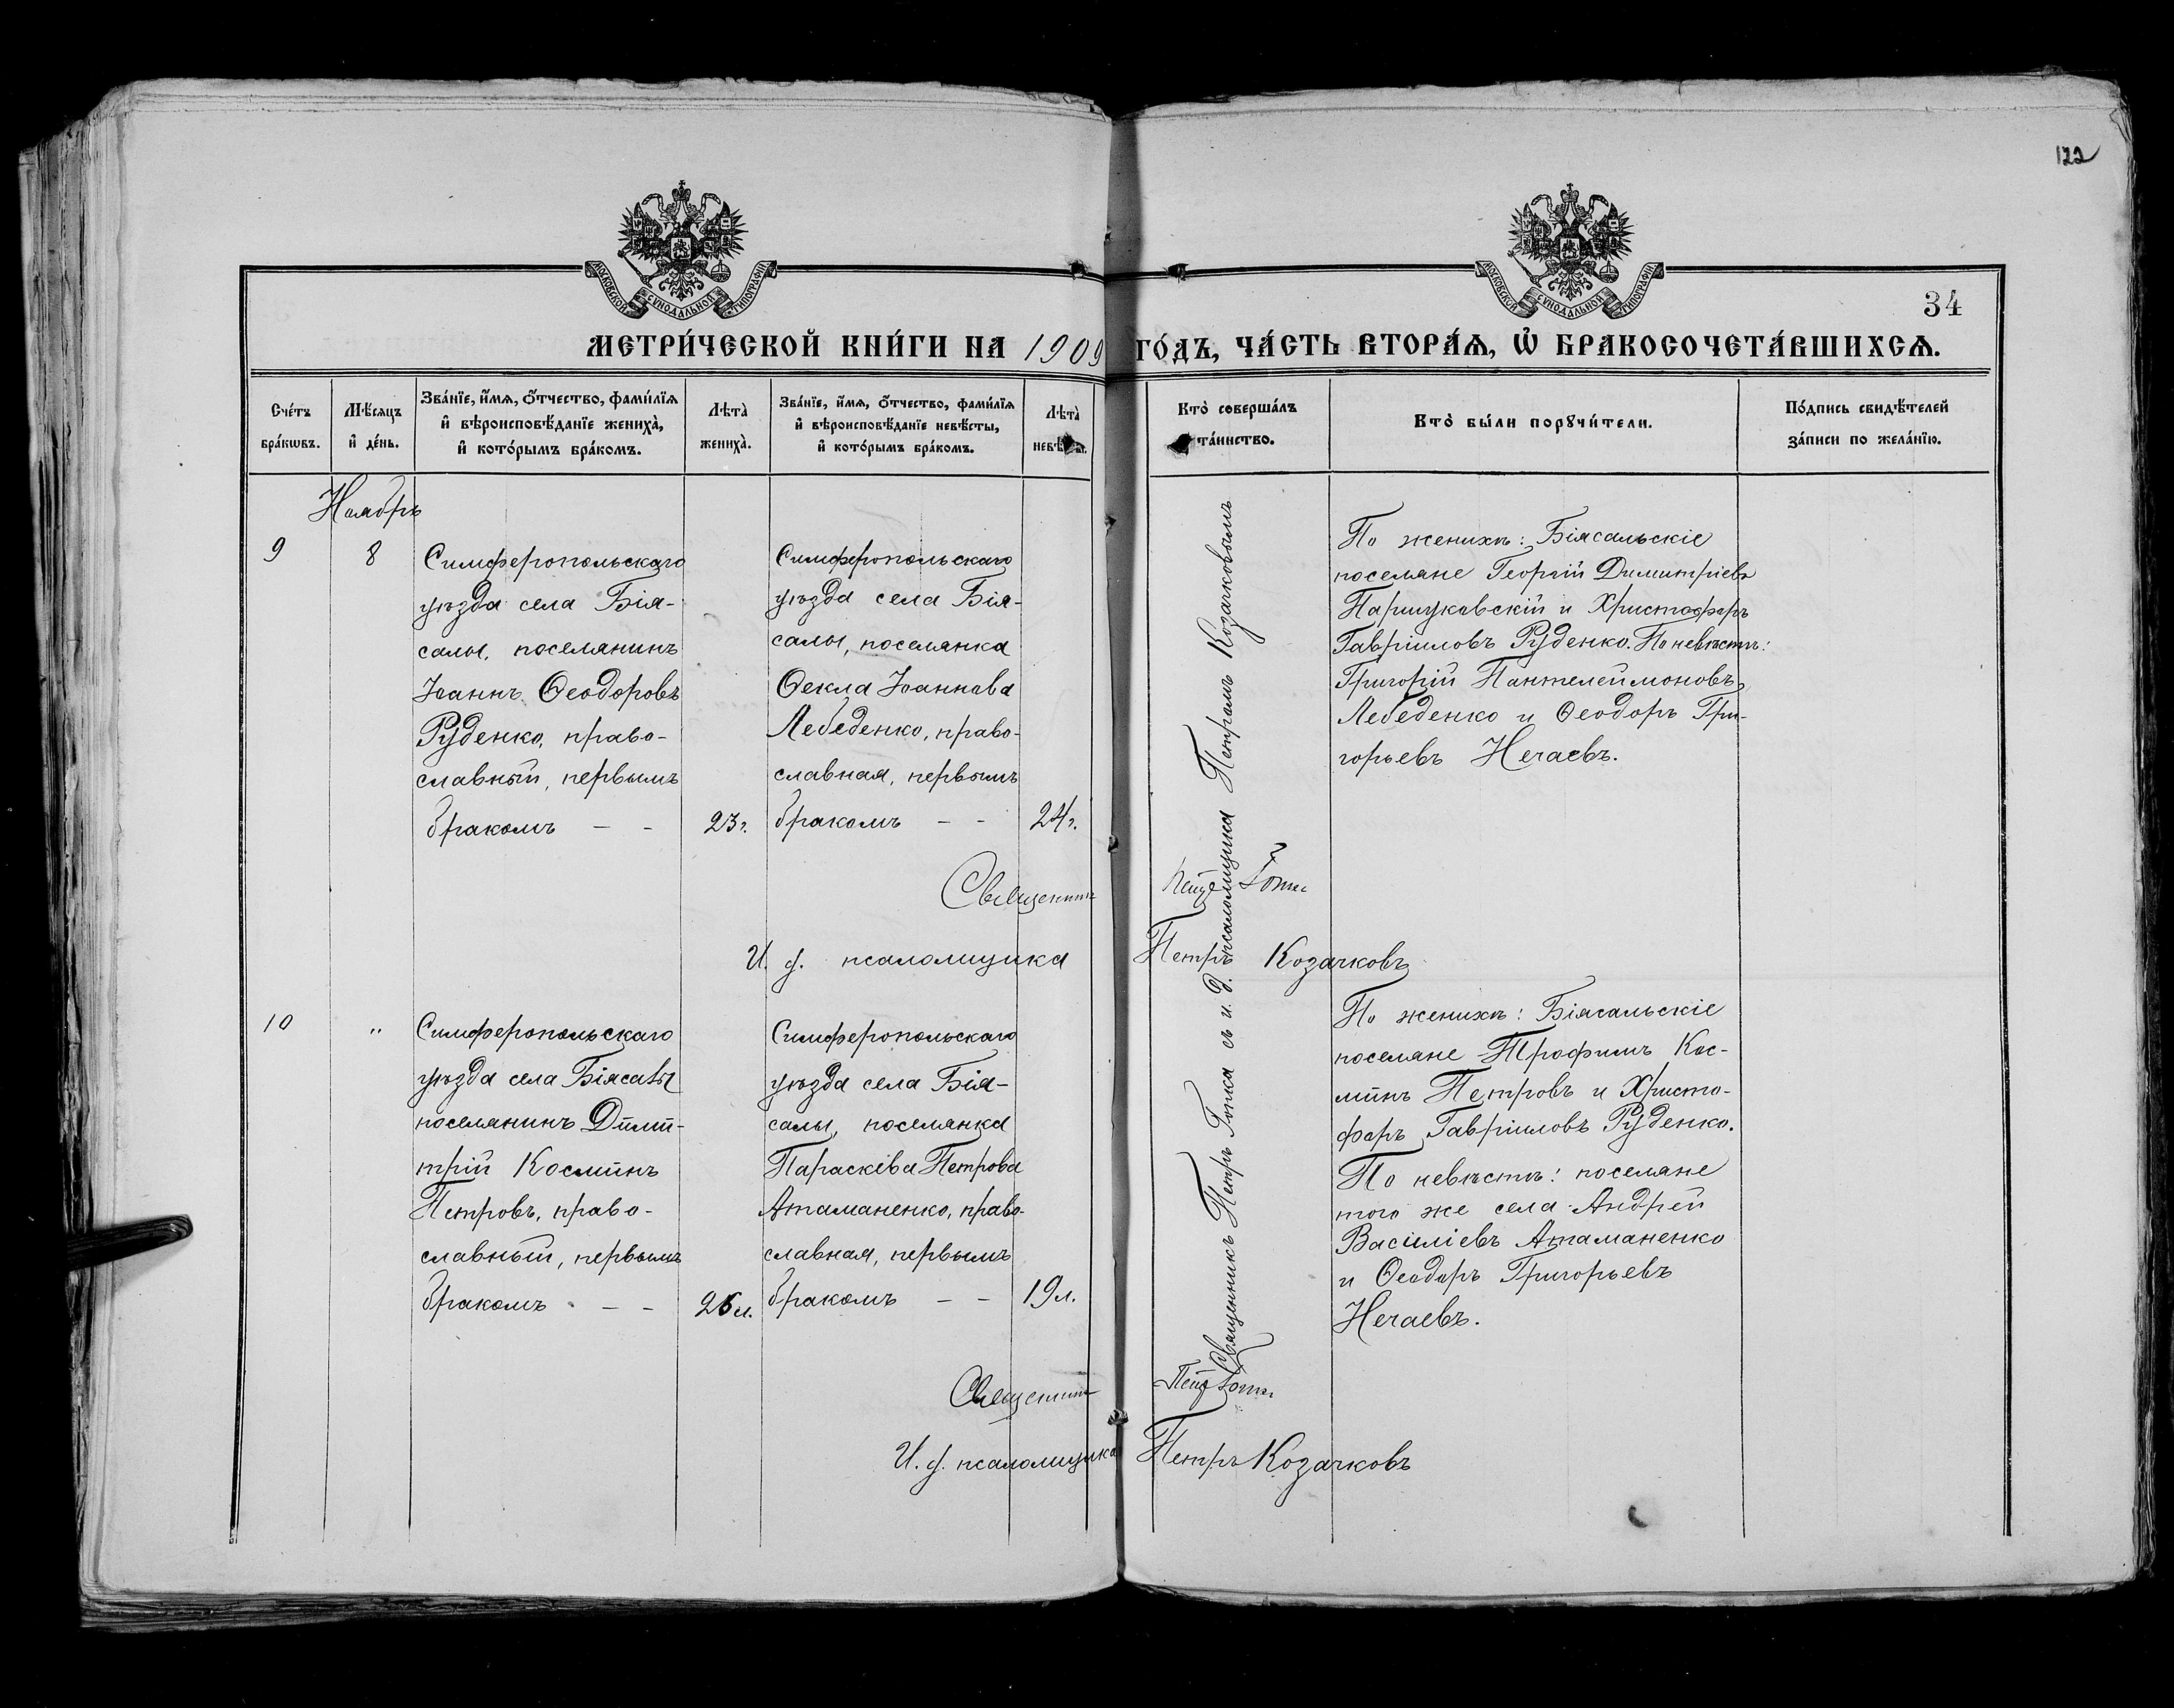 122
МОСКОВСКОЙ СУНОДАЛЬНОЙ ТИПОГРАФІИ
МОСКОВСКОЙ СУНОДАЛЬНОЙ ТИПОГРАФІИ
34
МЕТРИ́ЧЕСКОЙ КНИ́ГИ НА 1909 ГО́ДЪ, ЧА́СТЬ ВТОРА́Ѧ, Ѡ҆ БРАКОСОЧЕТА́ВШИХСѦ.
Сче́тъ
бра́кѡвъ.
Мѣ́сѧцъ
и҆ де́нь.
Зва́нїе, и҆́мѧ, ѻ҆́тчество, фами́лїѧ
и҆ вѣроисповѣ́данїе жениха̀,
и҆ кото́рымъ бра́комъ.
Лѣта̀
жениха̀.
Зва́нїе, и҆́мѧ, ѻ҆́тчество, фами́лїѧ
и҆ вѣроисповѣ́данїе невѣ́сты,
и҆ кото́рымъ бра́комъ.
Лѣта̀
невѣ́сты.
Кто̀ соверша́лъ
та́инство.
Кто̀ бы́ли порꙋчи́тели.
По́дпись свидѣ́телей
за́писи по жела́нїю.
Ноябрь
9
8
Симферопольскаго
уѣзда села Бія-
салы, поселянинъ
Іоаннъ Ѳеодоровъ
Руденко, право-
славный, первымъ
бракомъ – –
23 г.
Симферопольскаго
уѣзда села Бія-
салы, поселянка
Ѳекла Іоаннова
Лебеденко, право-
славная, первымъ
бракомъ – –
24 г.
Священникъ Петръ Гопка съ и. д. псаломщика Петромъ Козачковымъ
По женихѣ: Біясальскіе
поселяне Георгій Димитріевъ
Паршуковскій и Христофоръ
Гавріиловъ Руденко. По невѣстѣ:
Григорій Пантелеймоновъ
Лебеденко и Ѳеодоръ Гри-
горьевъ Нечаевъ.
Священникъ Петръ
И. д. псаломщика Петръ Козачковъ
10
"
Симферопольскаго
уѣзда села Біясалы
поселянинъ Дими-
трій Косминъ
Петровъ, право-
славный, первымъ
бракомъ – –
26 л.
Симферопольскаго
уѣзда села Бія-
салы, поселянка
Парасківа Петрова
Атаманенко, право-
славная, первымъ
бракомъ – –
19 л.
По женихѣ: Біясальскіе
поселяне Трофимъ Кос-
минъ Петровъ и Христо-
форъ Гавріиловъ Руденко.
По невѣстѣ: поселяне
того же села Андрей
Василіевъ Атаманенко
и Ѳеодоръ Григорьевъ
Нечаевъ.
Священникъ Петръ
И. д. псаломщика Петръ Козачковъ